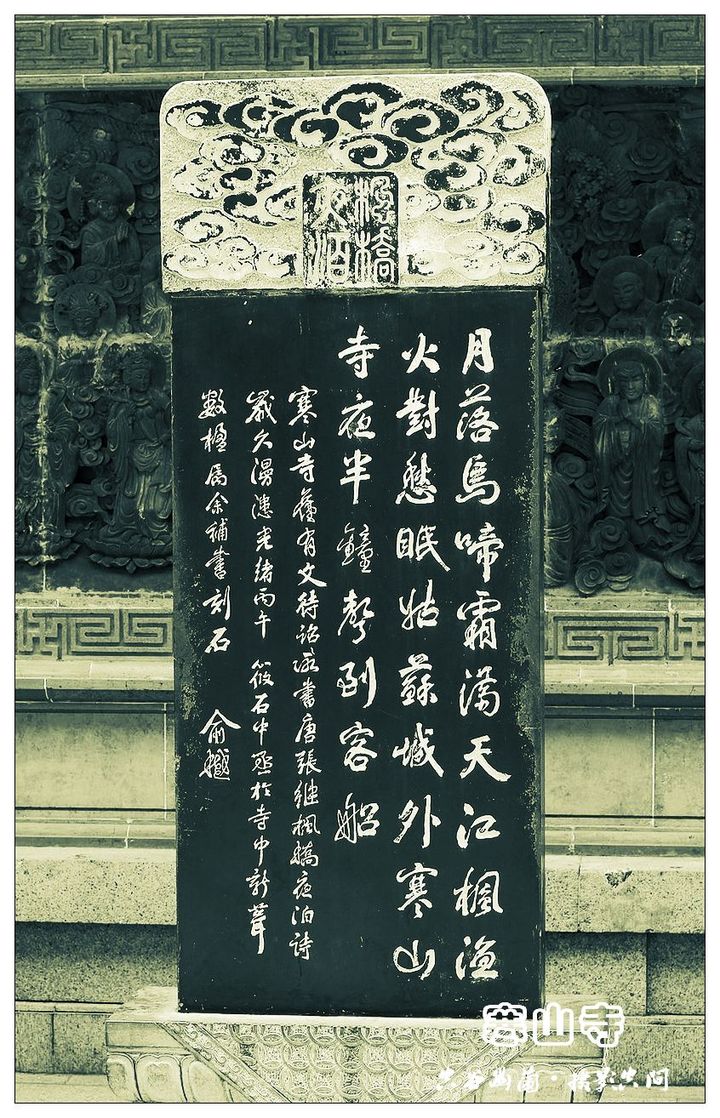 楓橋
夜泊
月落烏啼霜滿天江楓漁
火對愁眠姑蘇城外寒山
寺夜半鐘聲到客船
寒山寺舊有文待詔所書唐張繼楓橋夜泊詩
歲久漫漶光緒丙午 筱石中丞於寺中新葺
數楹属余補書刻石 俞樾
寒山寺